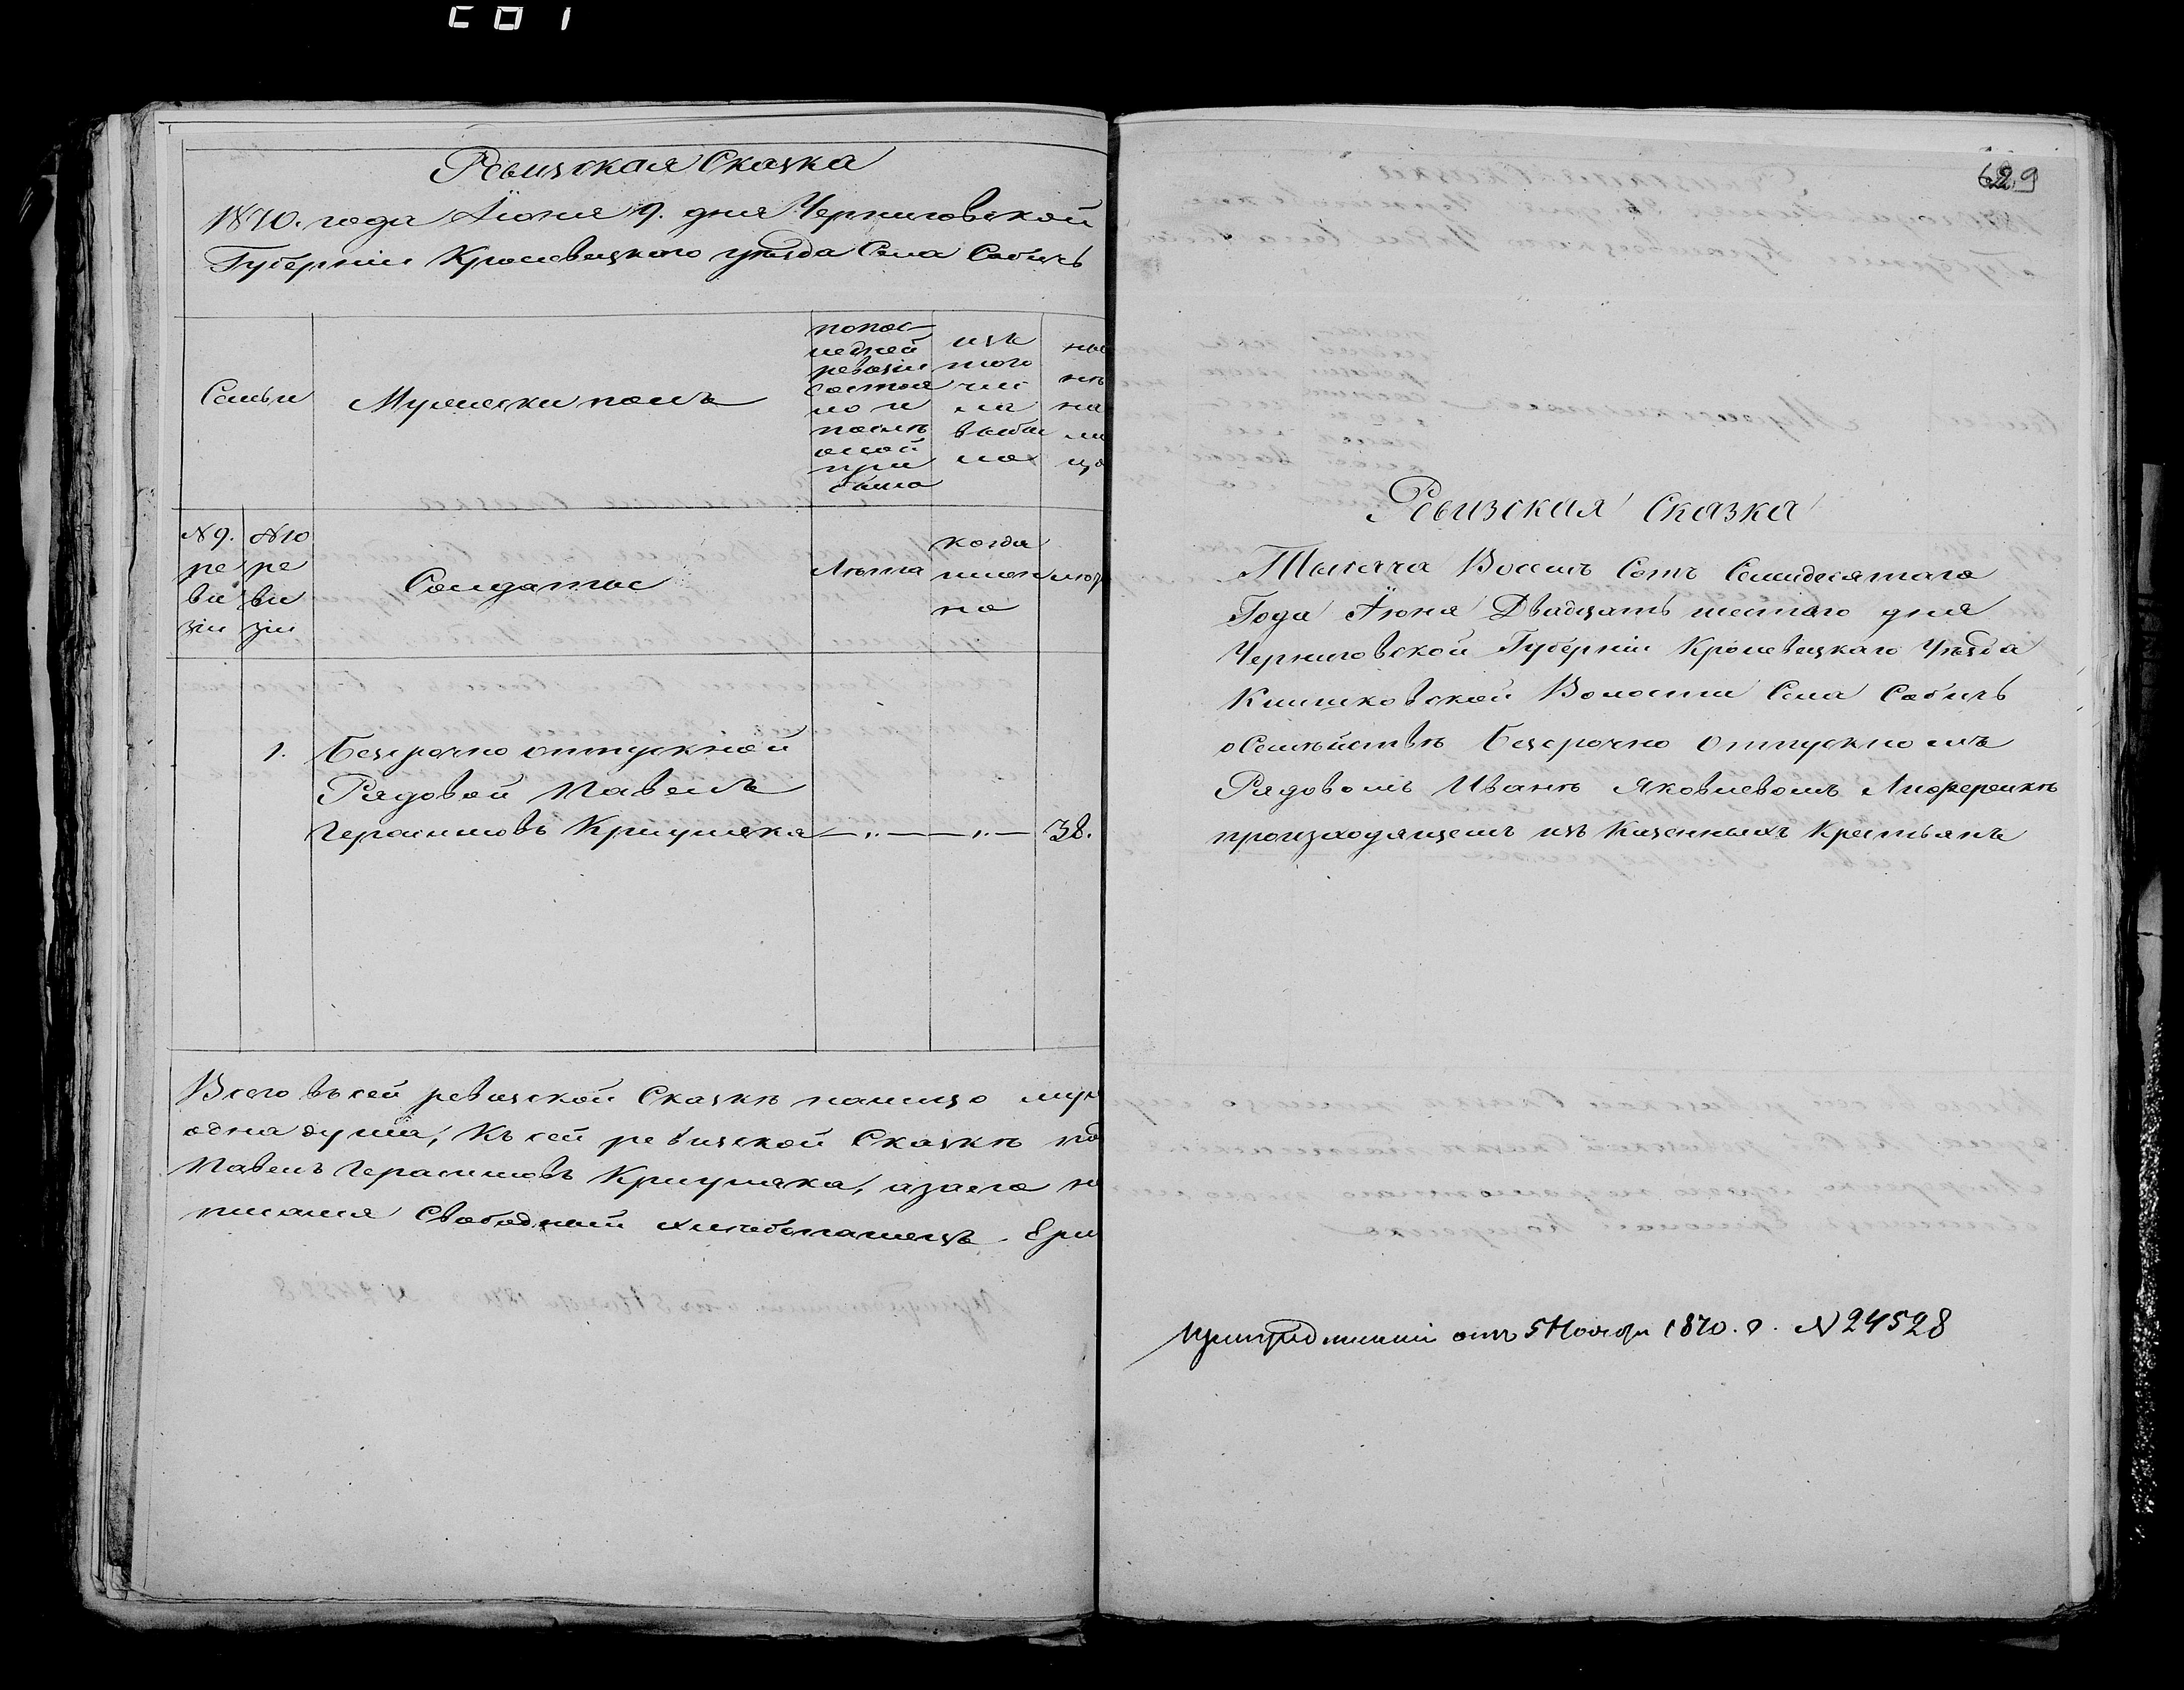 Ревизская Сказка
1870. года Іюня 9. дня Черниговской
Губерніи Кролевецкаго уѣзда Села Собичъ
Семьи
Мужески полъ
попос-
ледней
ревизіи
состоя
ло и
послѣ
оной
при
было
изъ
того
чи
ла
выбы
ло
ны
нѣ
на
ли
цо
№ 9.
ре
ви
зіи
№ 10
ре
ви
зіи
Солдаты
Лѣта
когда
имен
но
1. Безсрочно отпускной
Рядовой Павелъ
Герасимовъ Кришунека 38.
Всего въ сей ревизской Сказкѣ налицо муж
одна душа, Къ сей ревизской Сказкѣ
Павелъ Герасимовъ Кришунека, а за его
писания Свободный хлебопашецъ
629
Ревизская Сказка
Тысяча Восемь Сотъ Семидесятаго
Года Іюня Двадцать шестаго дня
Черниговской Губерніи Кролевецкаго Уѣзда
Клишковской Волости Села Собичъ
о Семѣйствѣ Безсрочно Отпускномъ
Рядовомъ Иванѣ Яковлевомъ Лифиренкѣ
произходящемъ изъ Казенныхъ Крестьянъ
отъ 5 Ноября 1870. г. № 24528